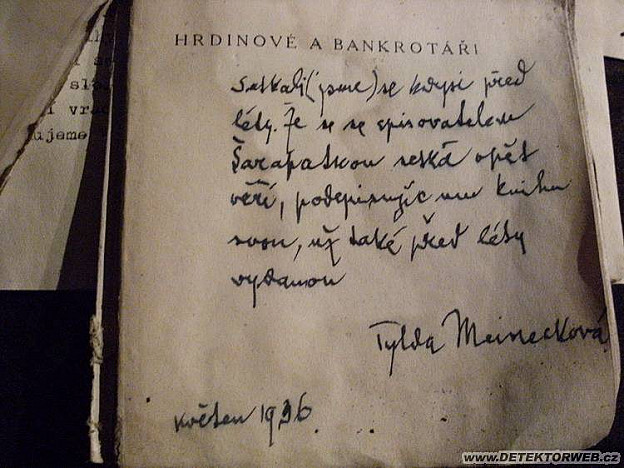 slo
vra
ujeme
HRDINOVÉ A BANKROTÁŘI
setkali (jsme) se kdysi před
léty. Že se se spisovatelem
Šarapatkou setká opět
věří, podepisujíc mu knihu
svou, už také před léty
vydanou
Tylda Meinecková
květen 1936
www.DETEKTORWEB.cz